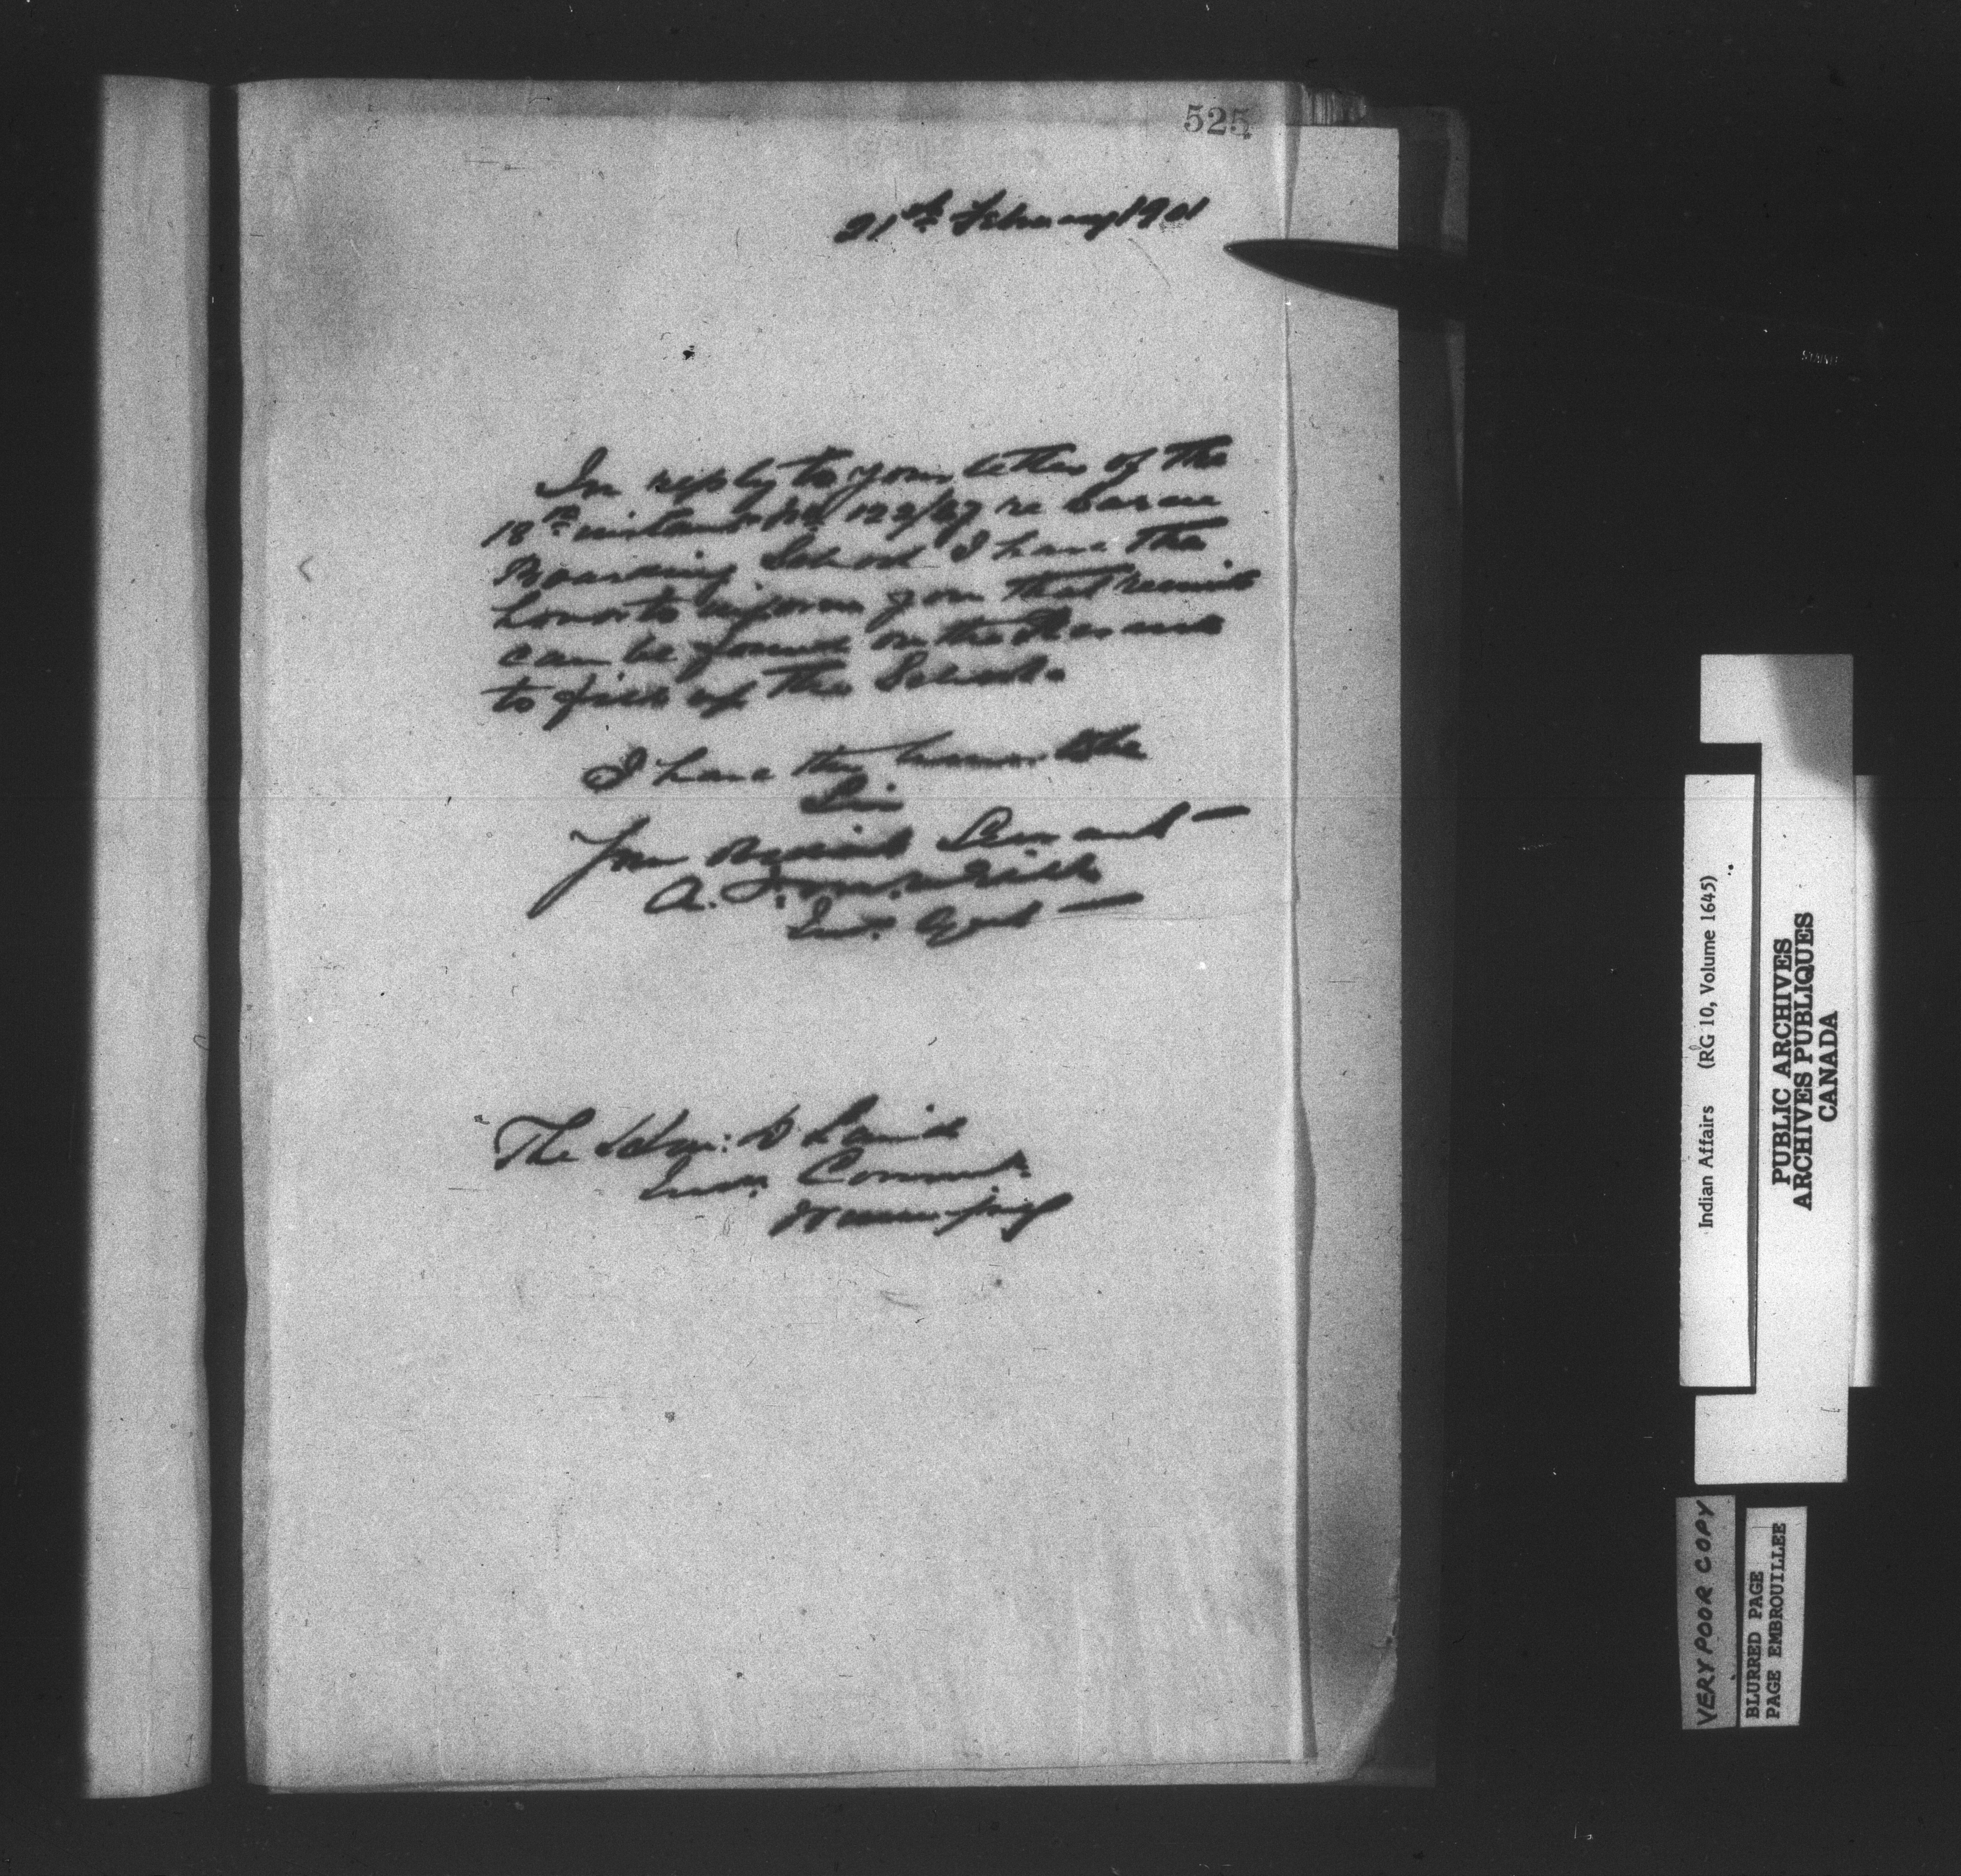 525
21st February 1901
In reply to your letter of the
18th instant No 122/67 re Cowesess
Boarding School I have the
honor to inform you that recruits
can be found on the Reserve
to fill up the School.
I have the honor to be
Sir
Your obedient Servant
A.
Ind. Agent
The Hon: D Laird
Indn. Commr.
Winnipeg
Indian Affairs (RG 10, Volume 1645)
PUBLIC ARCHIVES
ARCHIVES PUBLIQUES
CANADA
VERY POOR COPY
BLURRED PAGE
PAGE EMBROUILLEE